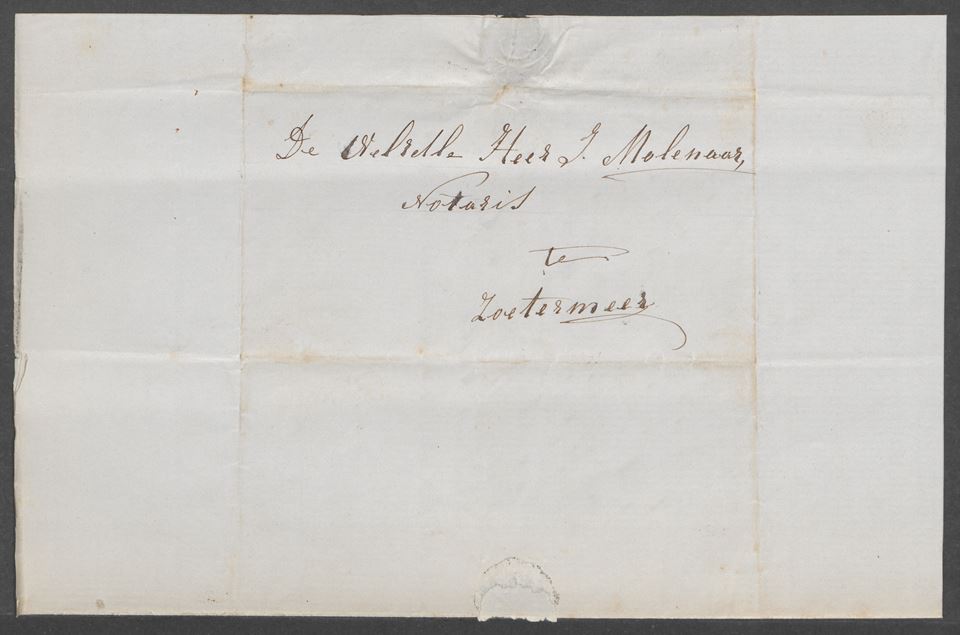 De WelEdle Heer J. Molenaar,
Notaris
te
Zoetermeer